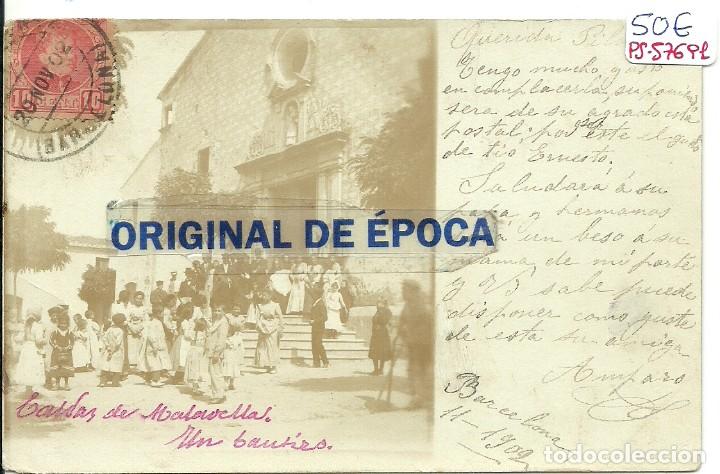 50€
PS-57691
Querida
Tengo mucho gusto
en complacerla, suponiendo
sera de su agrado esta
postal; por ser este el gusto
de tio Ernesto.
Saludará á su
papa y hermanos
un beso á su
mama de mi parte
y Vd sabe puede
disponer como guste
de esta su amiga
Amparo
Barcelona
11-1902
ORIGINAL DE ÉPOCA
Caldas de Malavella.
Un bautizo.
todocoleccion